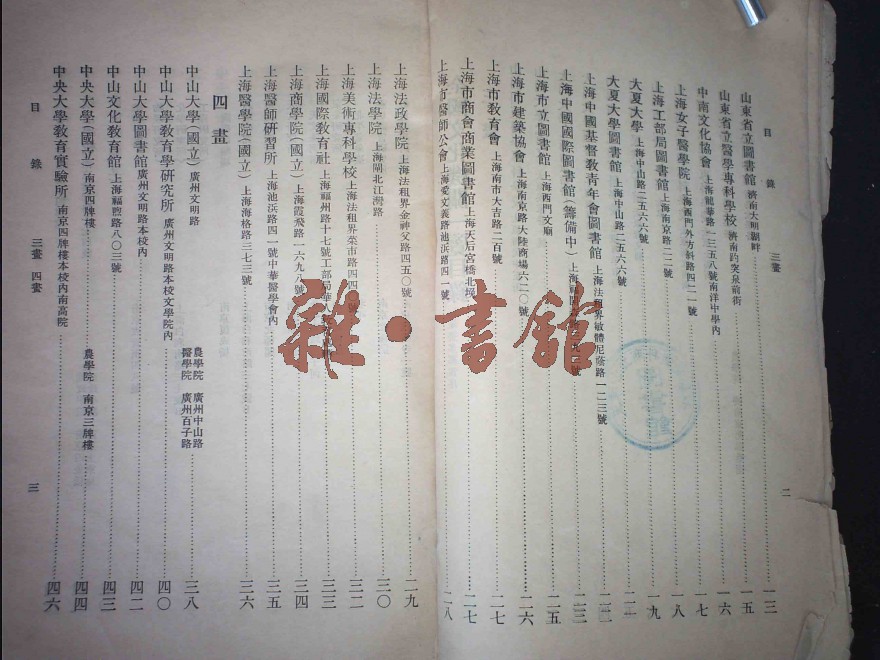 目錄 三畫 二
山東省立圖書館 濟南大明湖畔 一三
山東省立醫學專科學校 濟南趵突泉前街 一五
中南文化協會 上海龍華路一三五八號南洋中學內 一六
上海女子醫學院 上海西門外方斜路四二一號 一七
上海工部局圖書館 上海南京路二二號 一八
大夏大學 上海中山路二五六六號 一九
大夏大學圖書館 上海中山路二五六六號
上海中國基督教青年會圖書館 上海法租界敏體尼蔭路一二三號
上海中國國際圖書館(籌備中) 上海 號 二三
上海市立圖書館 上海西門文廟 二五
上海市建築協會 上海南京路大陸商場六二〇號 二六
上海市教育會 上海南市大吉路二百號 二七
上海市商會商業圖書館 上海天后宮橋北堍 二七
上海市醫師公會 上海愛文義路池浜路四一號 二八
上海法政學院 上海法租界金神父路四五〇號 二九
上海法學院 上海閘北江灣路 三〇
上海美術專科學校 上海法租界菜市路四四 號 三二
上海國際教育社 上海福州路十七號工部局華 三三
上海商學院(國立) 上海霞飛路一六九八號 三四
上海醫師研習所 上海池浜路四一號中華醫學會內 三五
上海醫學院(國立) 上海海格路三七三號 三六
四畫
中山大學(國立) 廣州文明路 農學院 廣州中山路 醫學院 廣州百子路 三八
中山大學教育學研究所 廣州文明路本校文學院內 四〇
中山大學圖書館 廣州文明路本校內 四二
中山文化教育館 上海福煦路八〇三號 四三
中央大學(國立) 南京四牌樓 農學院 南京三牌樓 四四
中央大學教育實驗所 南京四牌樓本校內南高院 四六
目錄 三畫 四畫 三
雜·書館